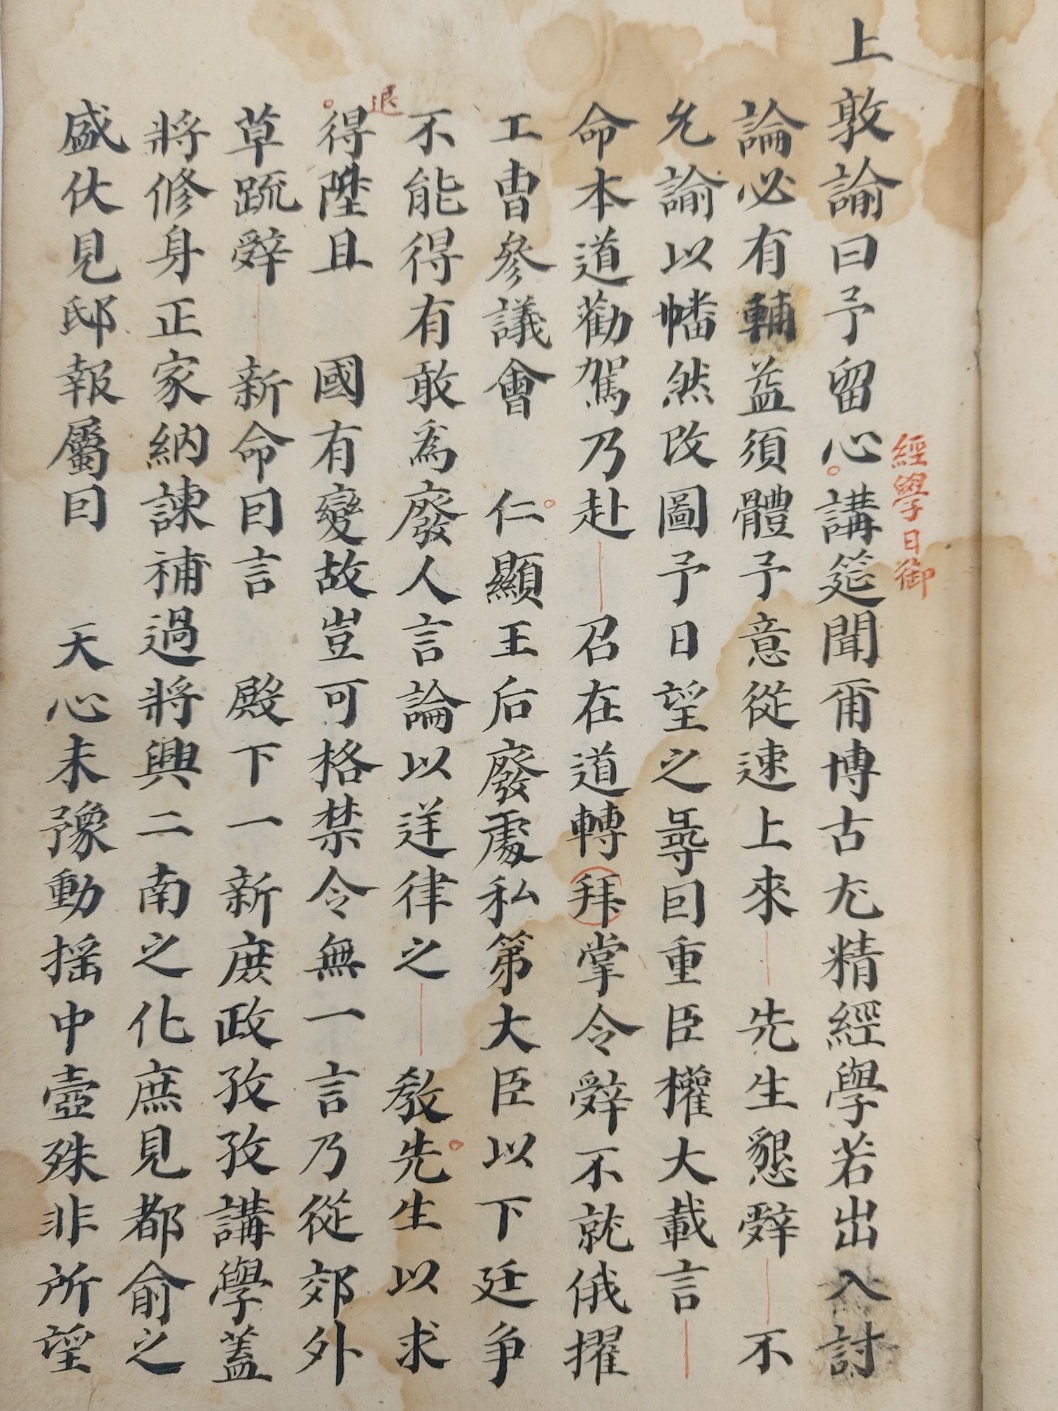 上敦諭曰予留心講筵聞甭博古尤精經學若出入討
經學日御
論必有輔益須體予意從速上來 先生懇辭 不
允諭以幡然改圖予日望之尋因重臣權大載言
命本道勸駕乃赴 召在道轉拜掌令辭不就俄擢
工曹參議會 仁顯王后廢處私第大臣以下廷爭
不能得有敢爲廢人言論以逆律之 教先生以求
退
得陞且 國有變故豈可格禁令無一言乃從郊外
草疏辭 新命因言 殿下一新庶政孜孜講學蓋
將修身正家納諫補過將興二南之化庶見都俞之
盛伏見邸報屬因 天心未豫動搖中壼殊非所望